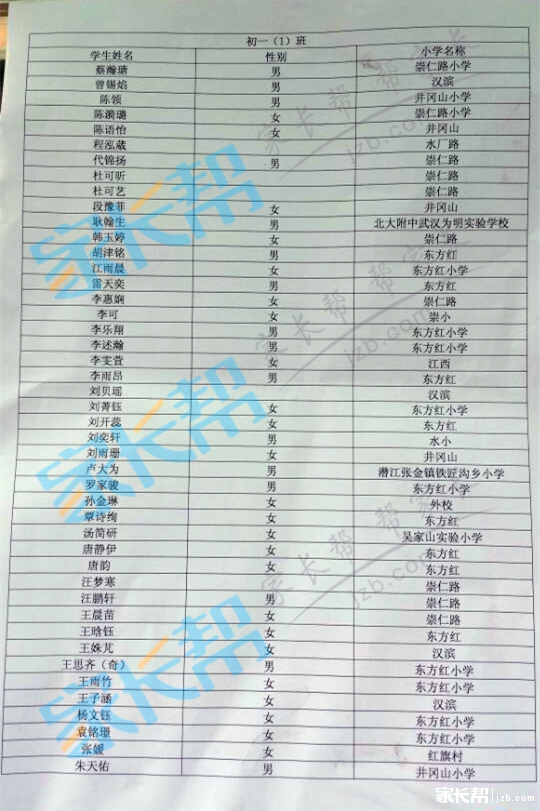 初一（1）班
学生姓名 性别 小学名称
蔡瀚瑭 男 崇仁路小学
曾锡焰 男 汉滨
陈领 男 井冈山小学
陈漪璐 女 崇仁路小学
陈语怡 女 井冈山
程泓葳 水厂路
代锦扬 男 崇仁路
杜可昕 崇仁路
杜可艺 崇仁路
段豫菲 女 井冈山
耿翰生 男 北大附中武汉为明实验学校
韩玉婷 女 崇仁路
胡津铭 男 东方红
江雨晨 女 东方红小学
雷天奕 男 东方红
李惠娴 女 崇仁路
李可 女 崇小
李乐翔 男 东方红小学
李述瀚 男 东方红小学
李雯萱 女 江西
李雨昂 男 东方红
刘贝瑶 汉滨
刘菁钰 女 东方红小学
刘开蕊 女 东方红
刘奕轩 男 水小
刘雨珊 女 井冈山
卢大为 男 潜江张金镇铁匠沟乡小学
罗家骏 男 东方红小学
孙金琳 女 外校
覃诗绚 女 东方红
汤简研 女 吴家山实验小学
唐静伊 女 东方红
唐韵 女 东方红
汪梦寒 崇仁路
汪鹏轩 男 崇仁路
王晨苗 女 崇仁路
王晗钰 女 东方红
王姝芃 女 汉滨
王思齐（奇） 男 东方红小学
王雨竹 女 东方红小学
王子涵 女 汉滨
杨文钰 女 东方红小学
袁铭璟 女 东方红小学
张媛 女 红旗村
朱天佑 男 井冈山小学
家长帮
jzb.com
家长帮
家长帮
家长帮
jzb.com
家长帮 jzb.com